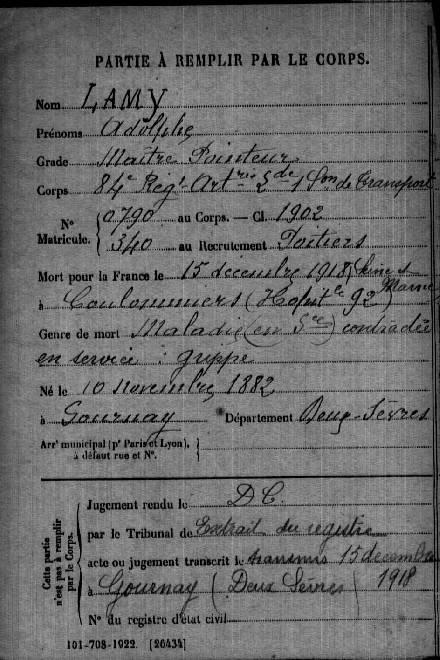 PARTIE À REMPLIR PAR LE CORPS.
Nom LAMY
Prénoms Adolphe
Grade Maître Pointeur
Corps 84e Régt Artrie 2de 1 Son de Transport
N° Matricule. 0790 au Corps. — Cl. 1902
340 au Recrutement Poitiers
Mort pour la France le 15 décembre 1918 (Seine et Marne
à Coulommiers (Hopit Ce 92)
Genre de mort Maladie (en Sce) contractée
en service : grippe
Né le 10 novembre 1882
à Gournay Département Deux-Sèvres
Arrt municipal (pr Paris et Lyon),
à défaut rue et N°.
Cette partie n'est pas à remplir par le Corps.
Jugement rendu le D.C.
par le Tribunal de Extrait du registre
acte ou jugement transcrit le transmis 15 décembre 1918
à Gournay (Deux Sèvres)
N° du registre d'état civil
101-708-1922. [26434]